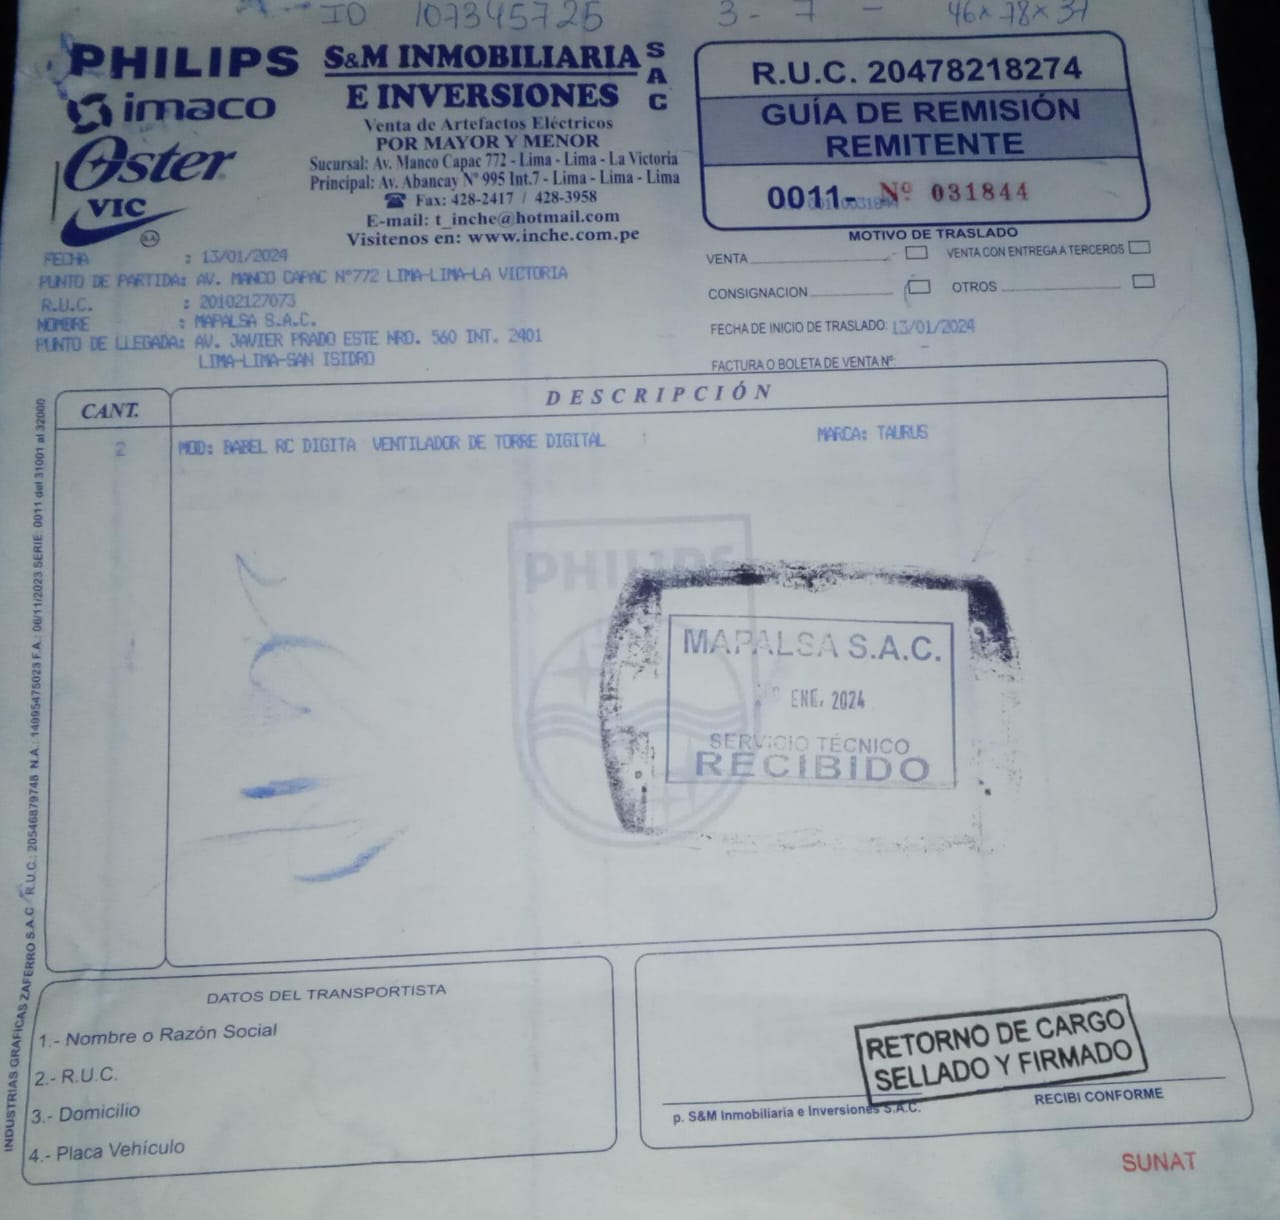 ID 107345725 3 - 7 - 46x78x37
PHILIPS
imaco
Oster
VIC
S.A.
S&M INMOBILIARIA SAC
E INVERSIONES
Venta de Artefactos Eléctricos
POR MAYOR Y MENOR
Sucursal: Av. Manco Capac 772 - Lima - Lima - La Victoria
Principal: Av. Abancay Nº 995 Int.7 - Lima - Lima - Lima
☎ Fax: 428-2417 / 428-3958
E-mail: t_inche@hotmail.com
Visitenos en: www.inche.com.pe
R.U.C. 20478218274
GUÍA DE REMISIÓN
REMITENTE
0011- Nº 031844
0011-0031844
MOTIVO DE TRASLADO
VENTA VENTA CON ENTREGA A TERCEROS
CONSIGNACION OTROS
FECHA DE INICIO DE TRASLADO: 13/01/2024
FACTURA O BOLETA DE VENTA Nº:
FECHA : 13/01/2024
PUNTO DE PARTIDA: AV. MANCO CAPAC Nº772 LIMA-LIMA-LA VICTORIA
R.U.C. : 20102127073
NOMBRE : MAPALSA S.A.C.
PUNTO DE LLEGADA: AV. JAVIER PRADO ESTE NRO. 560 INT. 2401
LIMA-LIMA-SAN ISIDRO
CANT. DESCRIPCIÓN
2 MOD: BABEL RC DIGITA VENTILADOR DE TORRE DIGITAL MARCA: TAURUS
PHILIPS
MAPALSA S.A.C.
ENE. 2024
SERVICIO TÉCNICO
RECIBIDO
INDUSTRIAS GRAFICAS ZAFERRO S.A.C R.U.C.: 20546879748 N.A.: 14995475023 F.A.: 06/11/2023 SERIE: 0011 del 31001 al 32000
DATOS DEL TRANSPORTISTA
1.- Nombre o Razón Social
2.- R.U.C.
3.- Domicilio
4.- Placa Vehículo
RETORNO DE CARGO
SELLADO Y FIRMADO
p. S&M Inmobiliaria e Inversiones S.A.C.
RECIBI CONFORME
SUNAT